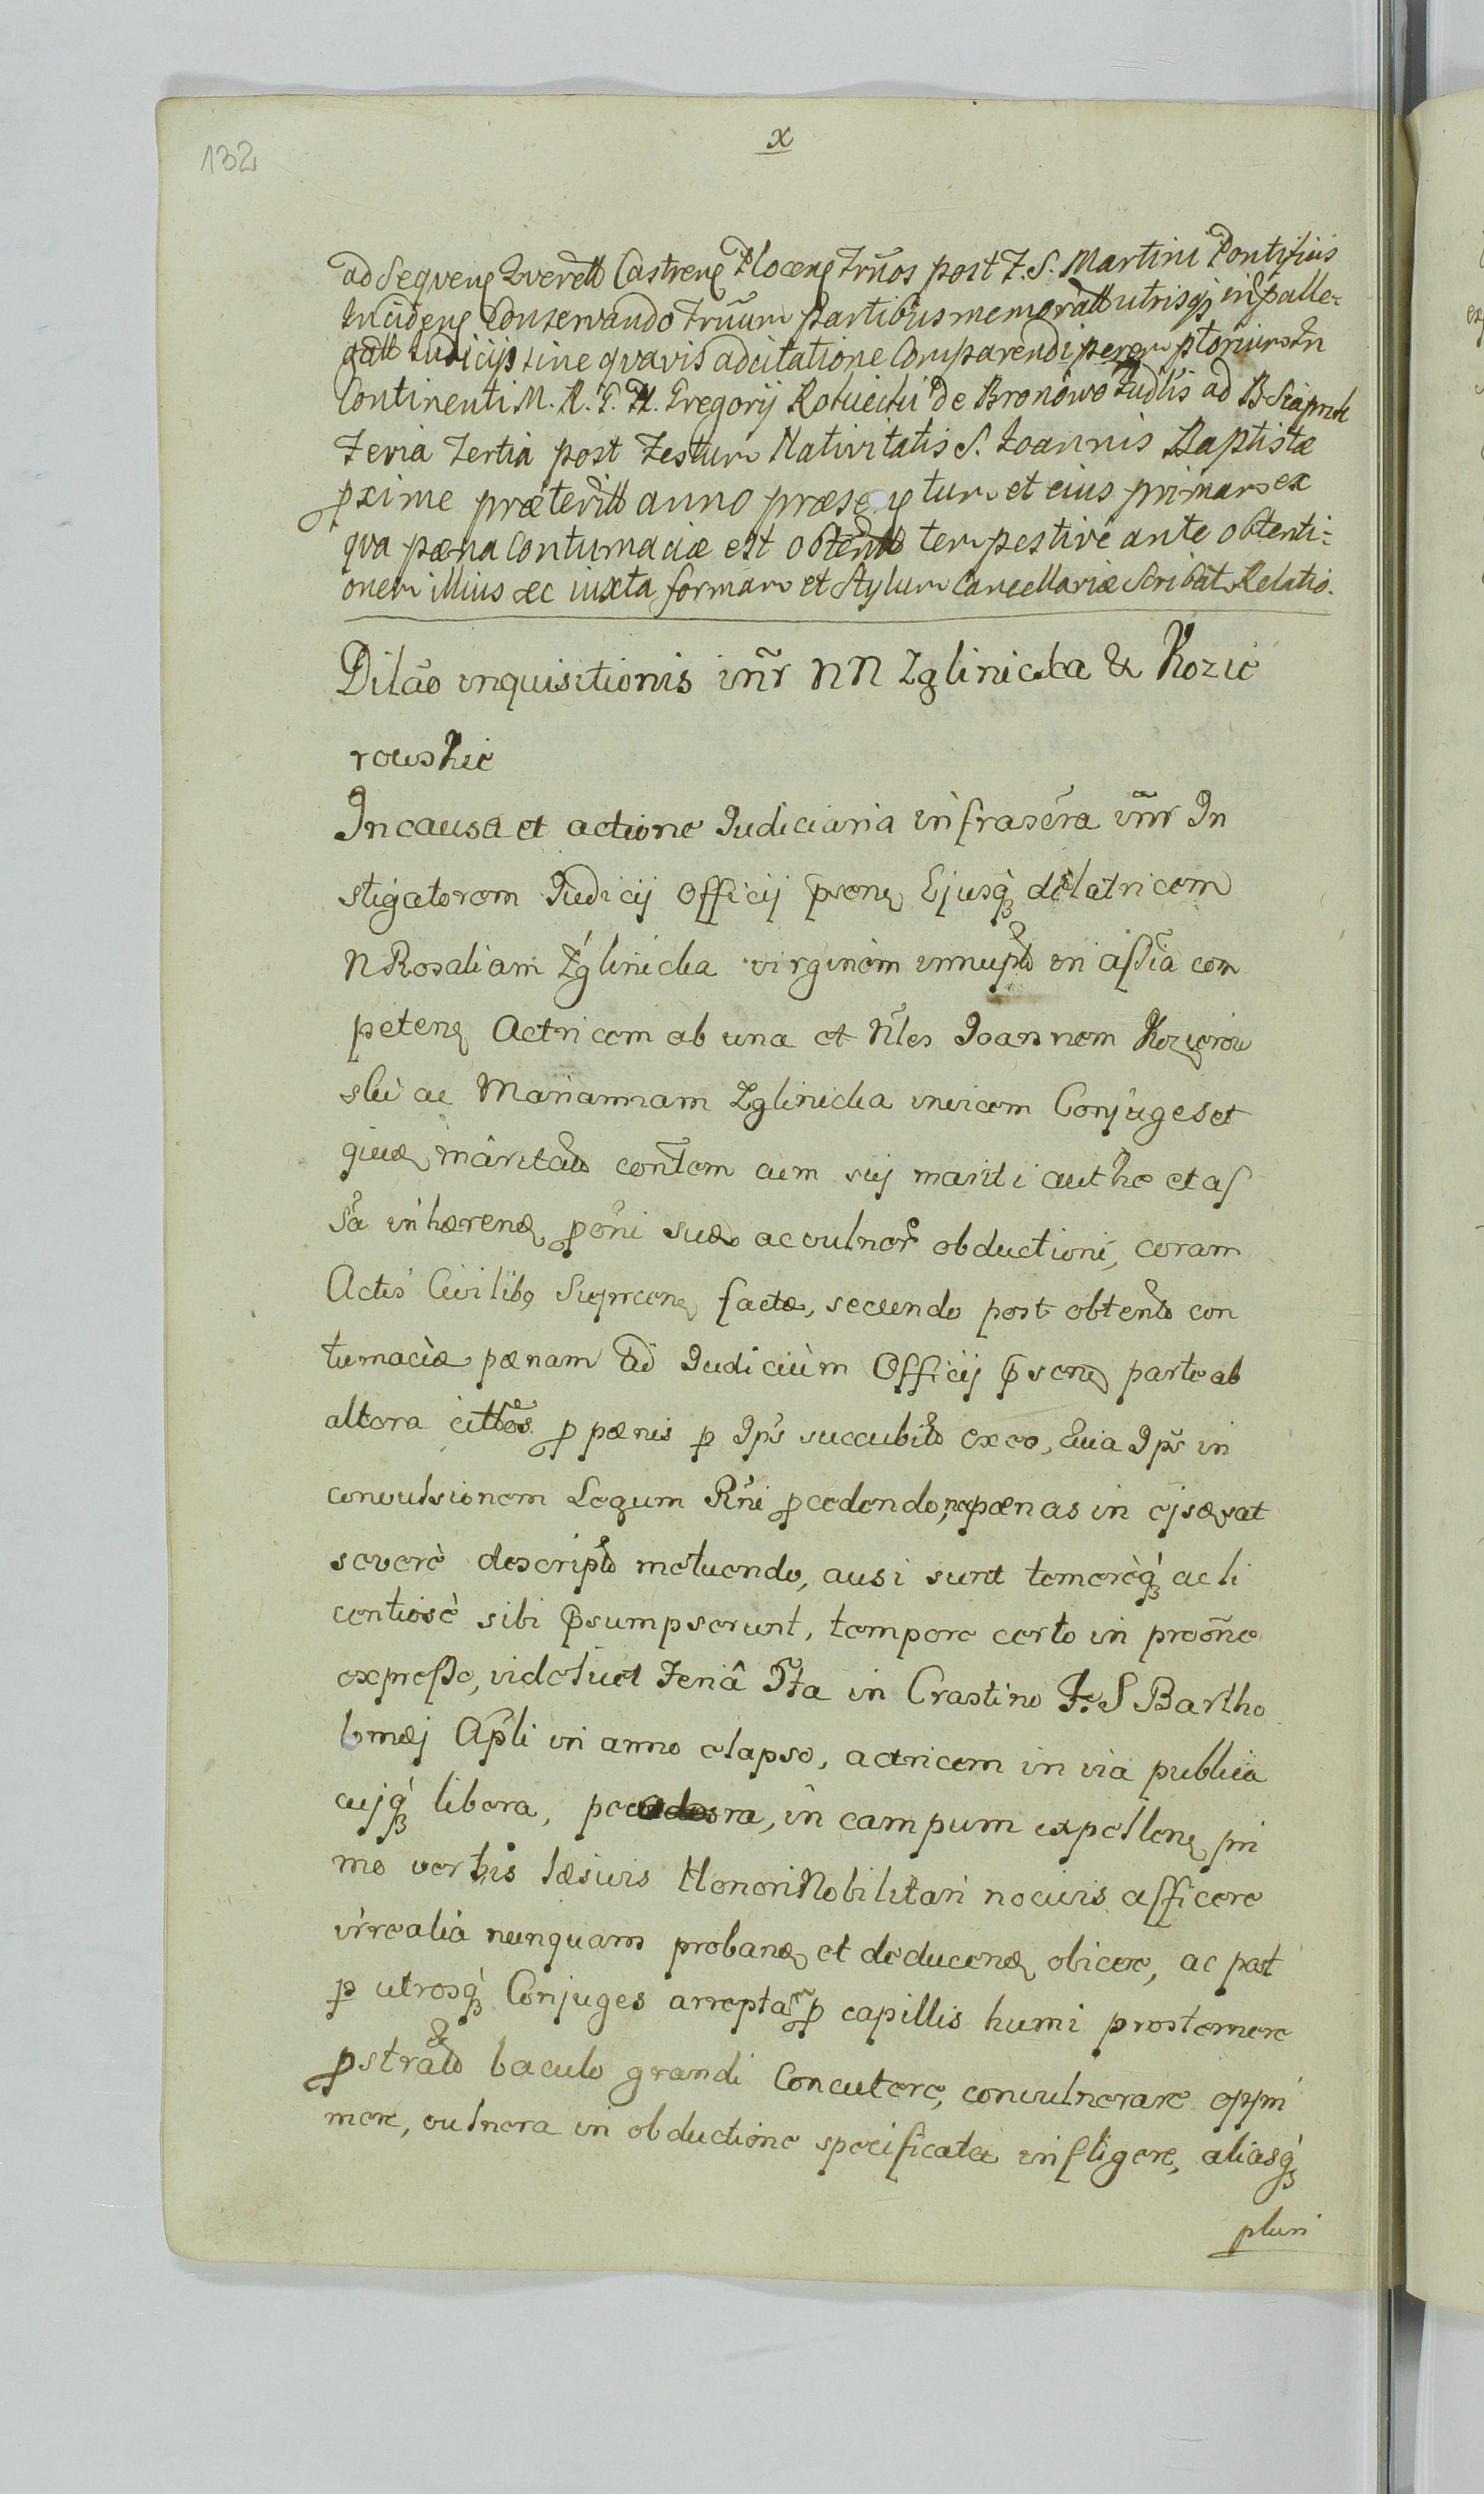 132
x
ad Sequeñ Querell Castreñ Ploceñ Trños post F. S. Martini Pontificis
Incideñ Conservando Trñum Partibus memoratt utrisq; in
gatt Iudicijs sine qvavis adcitatione Comparendi peremptorium In
Continenti M. R. G. Gregorij de Bronowo Iudlis ad
Feria Tertia post Festum Nativitatis S. Ioannis Baptistæ
pxime præteritt anno præseñtum et eius primam ex
qva pæna Contumaciæ est obtent tempestive ante obtenti:
onem illius ac iuxta formam et stylum Cancellariæ Scribat Relatio.
Dilão inquisitionis inr̃ NN Zglinicka & Kozie
rowskie
In causa et actione Iudiciaria infrascr̃a inr̃ In
stigatorem Iudicij Officij pseñ Ejusq́ delatricem
N Rosaliam Zglinicka virginem innupt in assia com
peteñ Actricem ab una et Nles Joannem Kozierow
ski ac Mariannam Zglinicka invicem Conjuges et
quæ maritatt contem cum sui mariti auth̃e et as
sa inhæreñ poñi suæ ac vulner obductioni, coram
Actis Civilibg Supreeñ factæ, secundo post obtent con
tumaciæ pænam ad Iudicium Officij pseñ parte ab
altera cittos. p pænis p Ips succubit ex eo, quia Ips in
convulsionem Legum Rñi pcedendo, neq pænas in ejs sat
severè descript metuendo, ausi sunt temerèq́ ac li
centiosè sibi psumpserunt, tempore certo in proone
expresso, videlicet Feriâ 5ta in Crastino F. S Bartho
lomæj Apli in anno elapso, actricem in via publica
cujq́ libera, pecora, in campum expelleñ pri
mo verbis læsivis Honori Nobilitari nocivis afficere
irrealia nunquam probañ et deduceñ obicere, ac post
p utrosq́ Conjuges arrepta p capillis humi prosternere
pstratt baculo grandi Concutere, convulnerare oppri
mere, vulnera in obductione specificata infligere, aliasq́
pluri